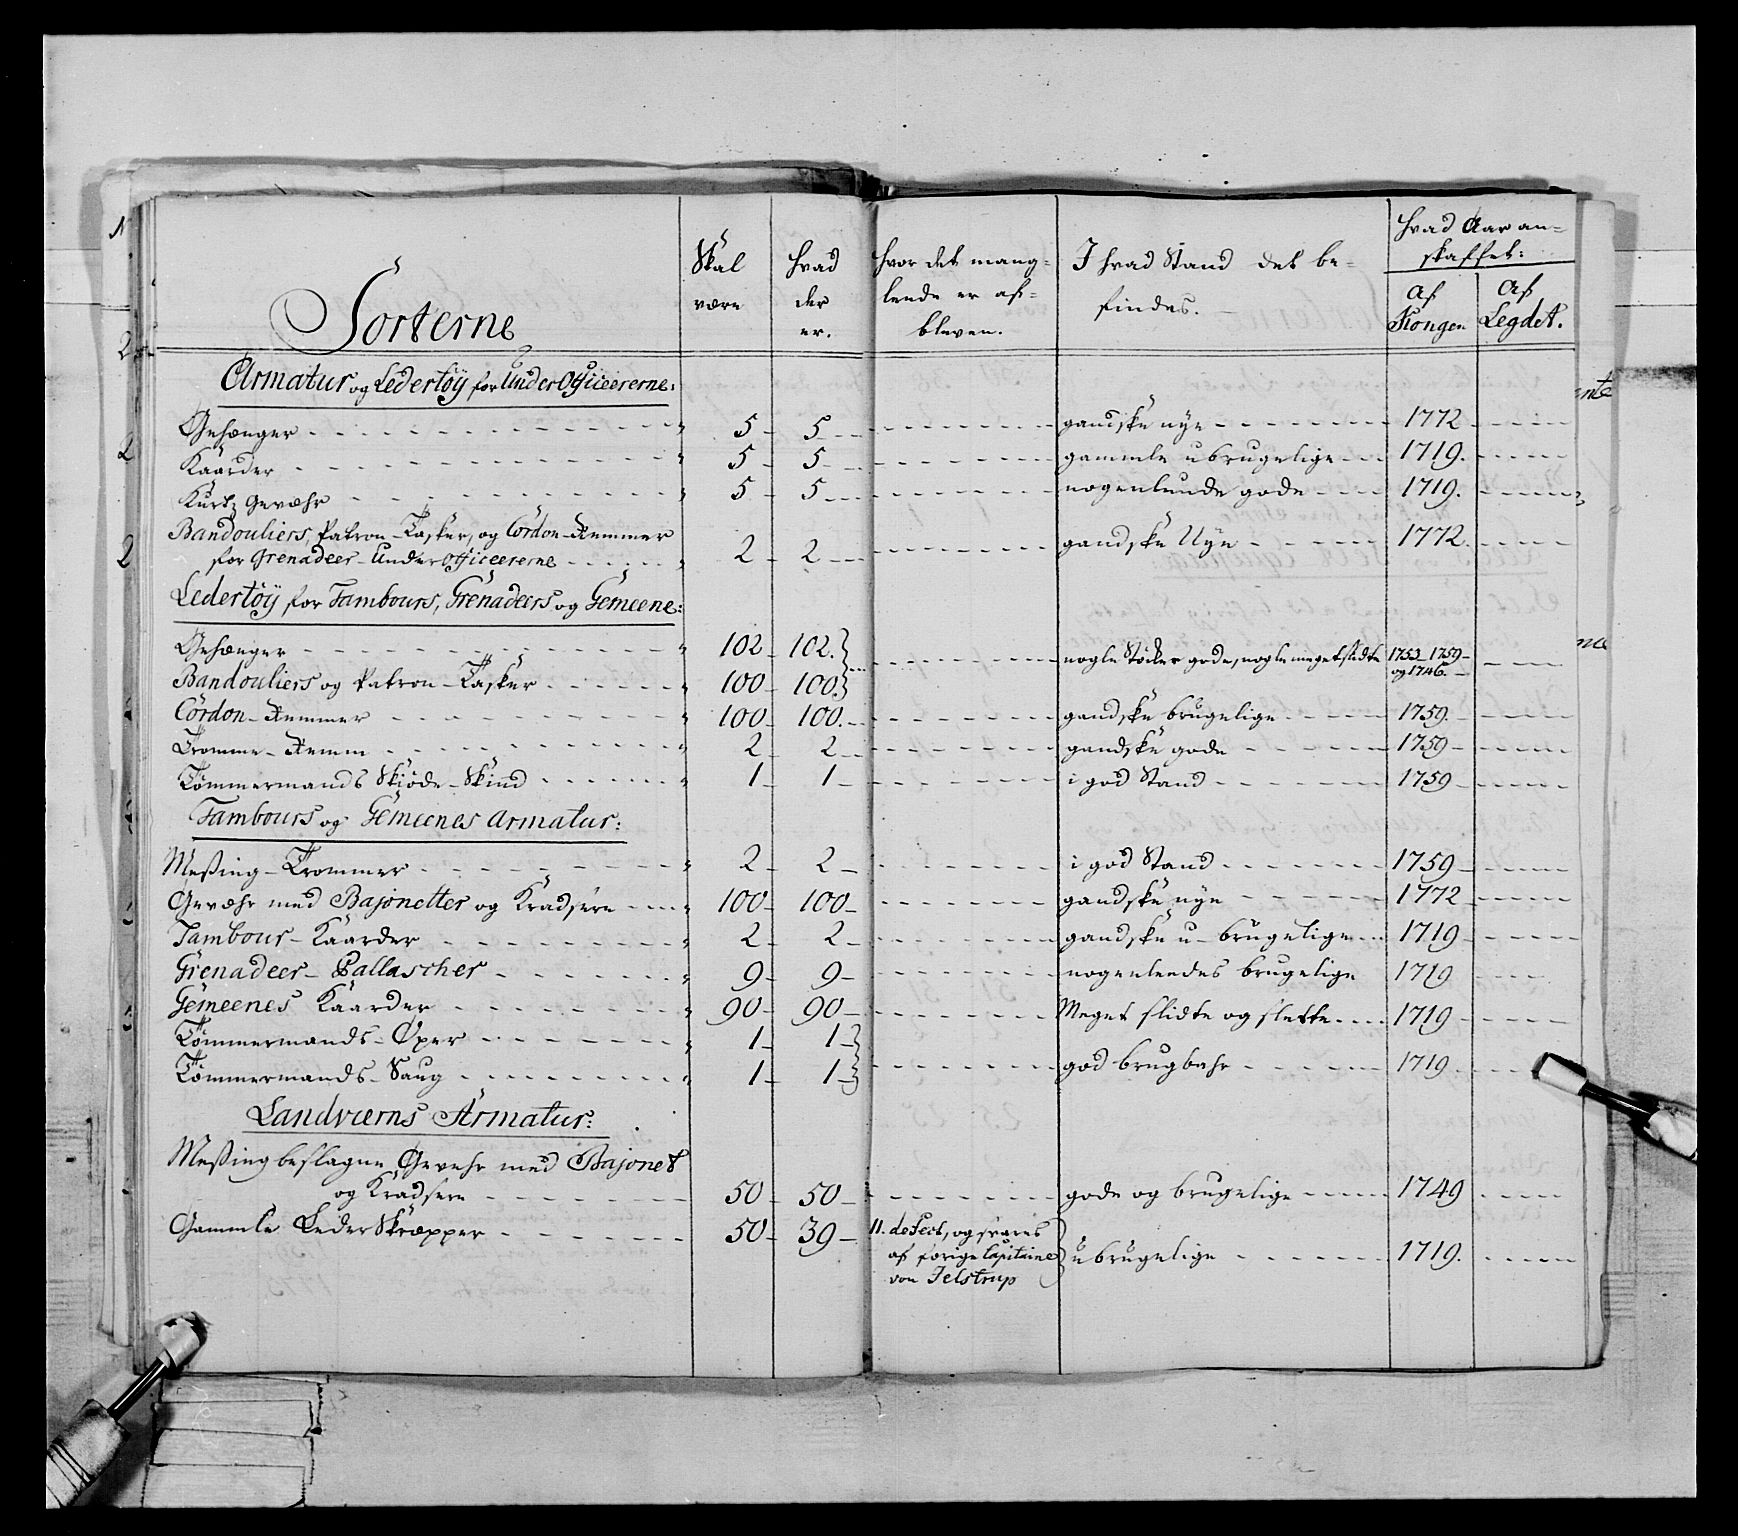 Sorterne
Skal være
Hvad der er.
Hvor det mang-
lende er af-
bleven.
I hvad Stand det be-
findes.
Hvad Aar an-
skaffet:
Af Kongen
Af Legdet.
Armatur og Ledertöy for UnderOfficeererne:
Gehænger 5 5 gandske nye 1772
Kaarder 5 5 gammle ubrugelige 1719.
Kurtz Gevæhr 5 5 nogenlunde gode 1719.
Bandouliers, Patron-Tasker, og Cordon-Remmer
for Grenadeer-UnderOfficeererne 2 2 gandske Nye 1772.
Ledertöy for Tambours, Grenadeers og Gemeene:
Gehænger 102 102. nogle Støcker gode, nogle meget slidte 1753-1759-
og 1746.
Bandouliers og Patron-Tasker 100 100.
Cordon-Remmer 100 100. gandske brugelige 1759.
Tromme-Remm 2 2 gandske gode 1759
Tømmermands Skiöde-Skind 1 1 i god Stand 1759
Tambours og Gemeenes Armatur:
Meßing-Trommer 2 2 i god Stand 1759
Gevæhr med Bajonetter og Kradsere 100 100 gandske nye 1772
Tambour-Kaarder 2 2 gandske u-brugelige 1719
Grenadeer-Pallascher 9 9 nogenleedes brugelige 1719
Gemeenes Kaarder 90 90 Meget slidte og slette 1719
Tømmermands-Øxer 1 1
Tømmermands-Saug 1 1 god brugbahr 1719
Landværns Armatur:
Meßingbeslagne Gevehr med Bajonet
og Kradsere 50 50 gode og brugelige 1749
Gammle LederSkræpper 50 39 11. defect, og svares
af forige Capitaine
von Jelstrup ubrugelige 1719.